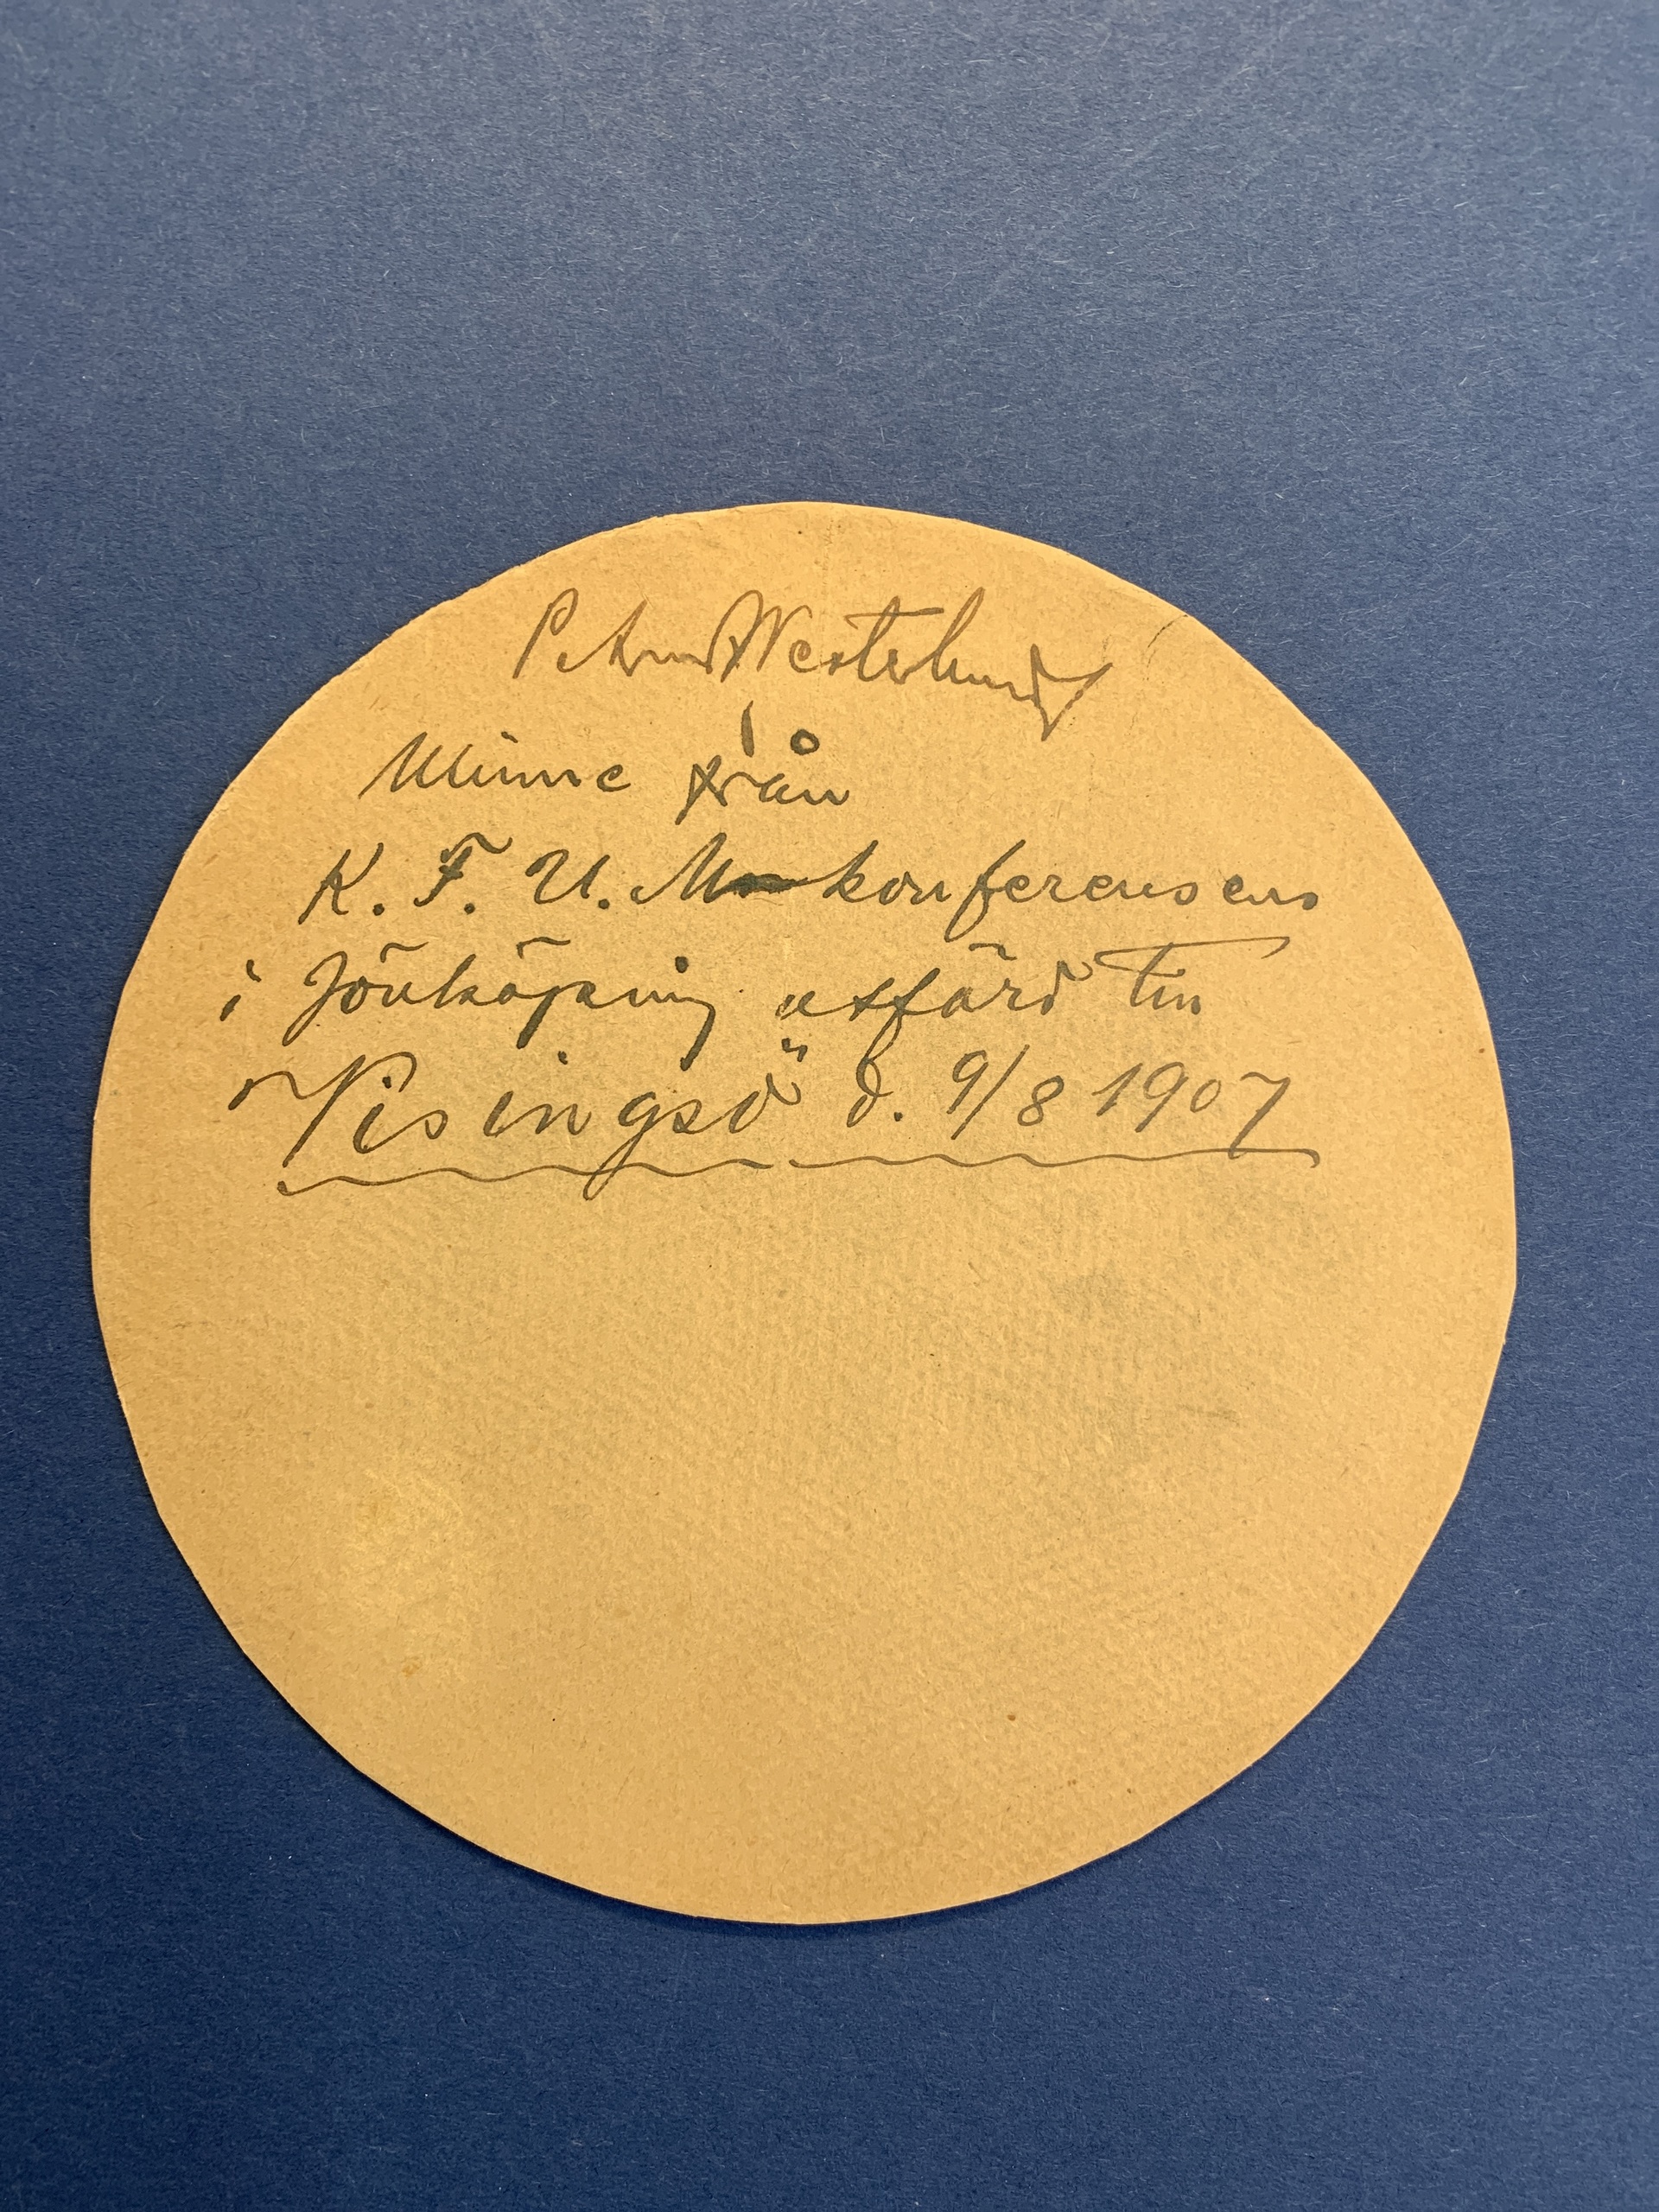 Petrus Westerlund
Minne från
K. F. U. M-konferensens
i Jönköping utfärd till
Visingsö d. 9/8 1907